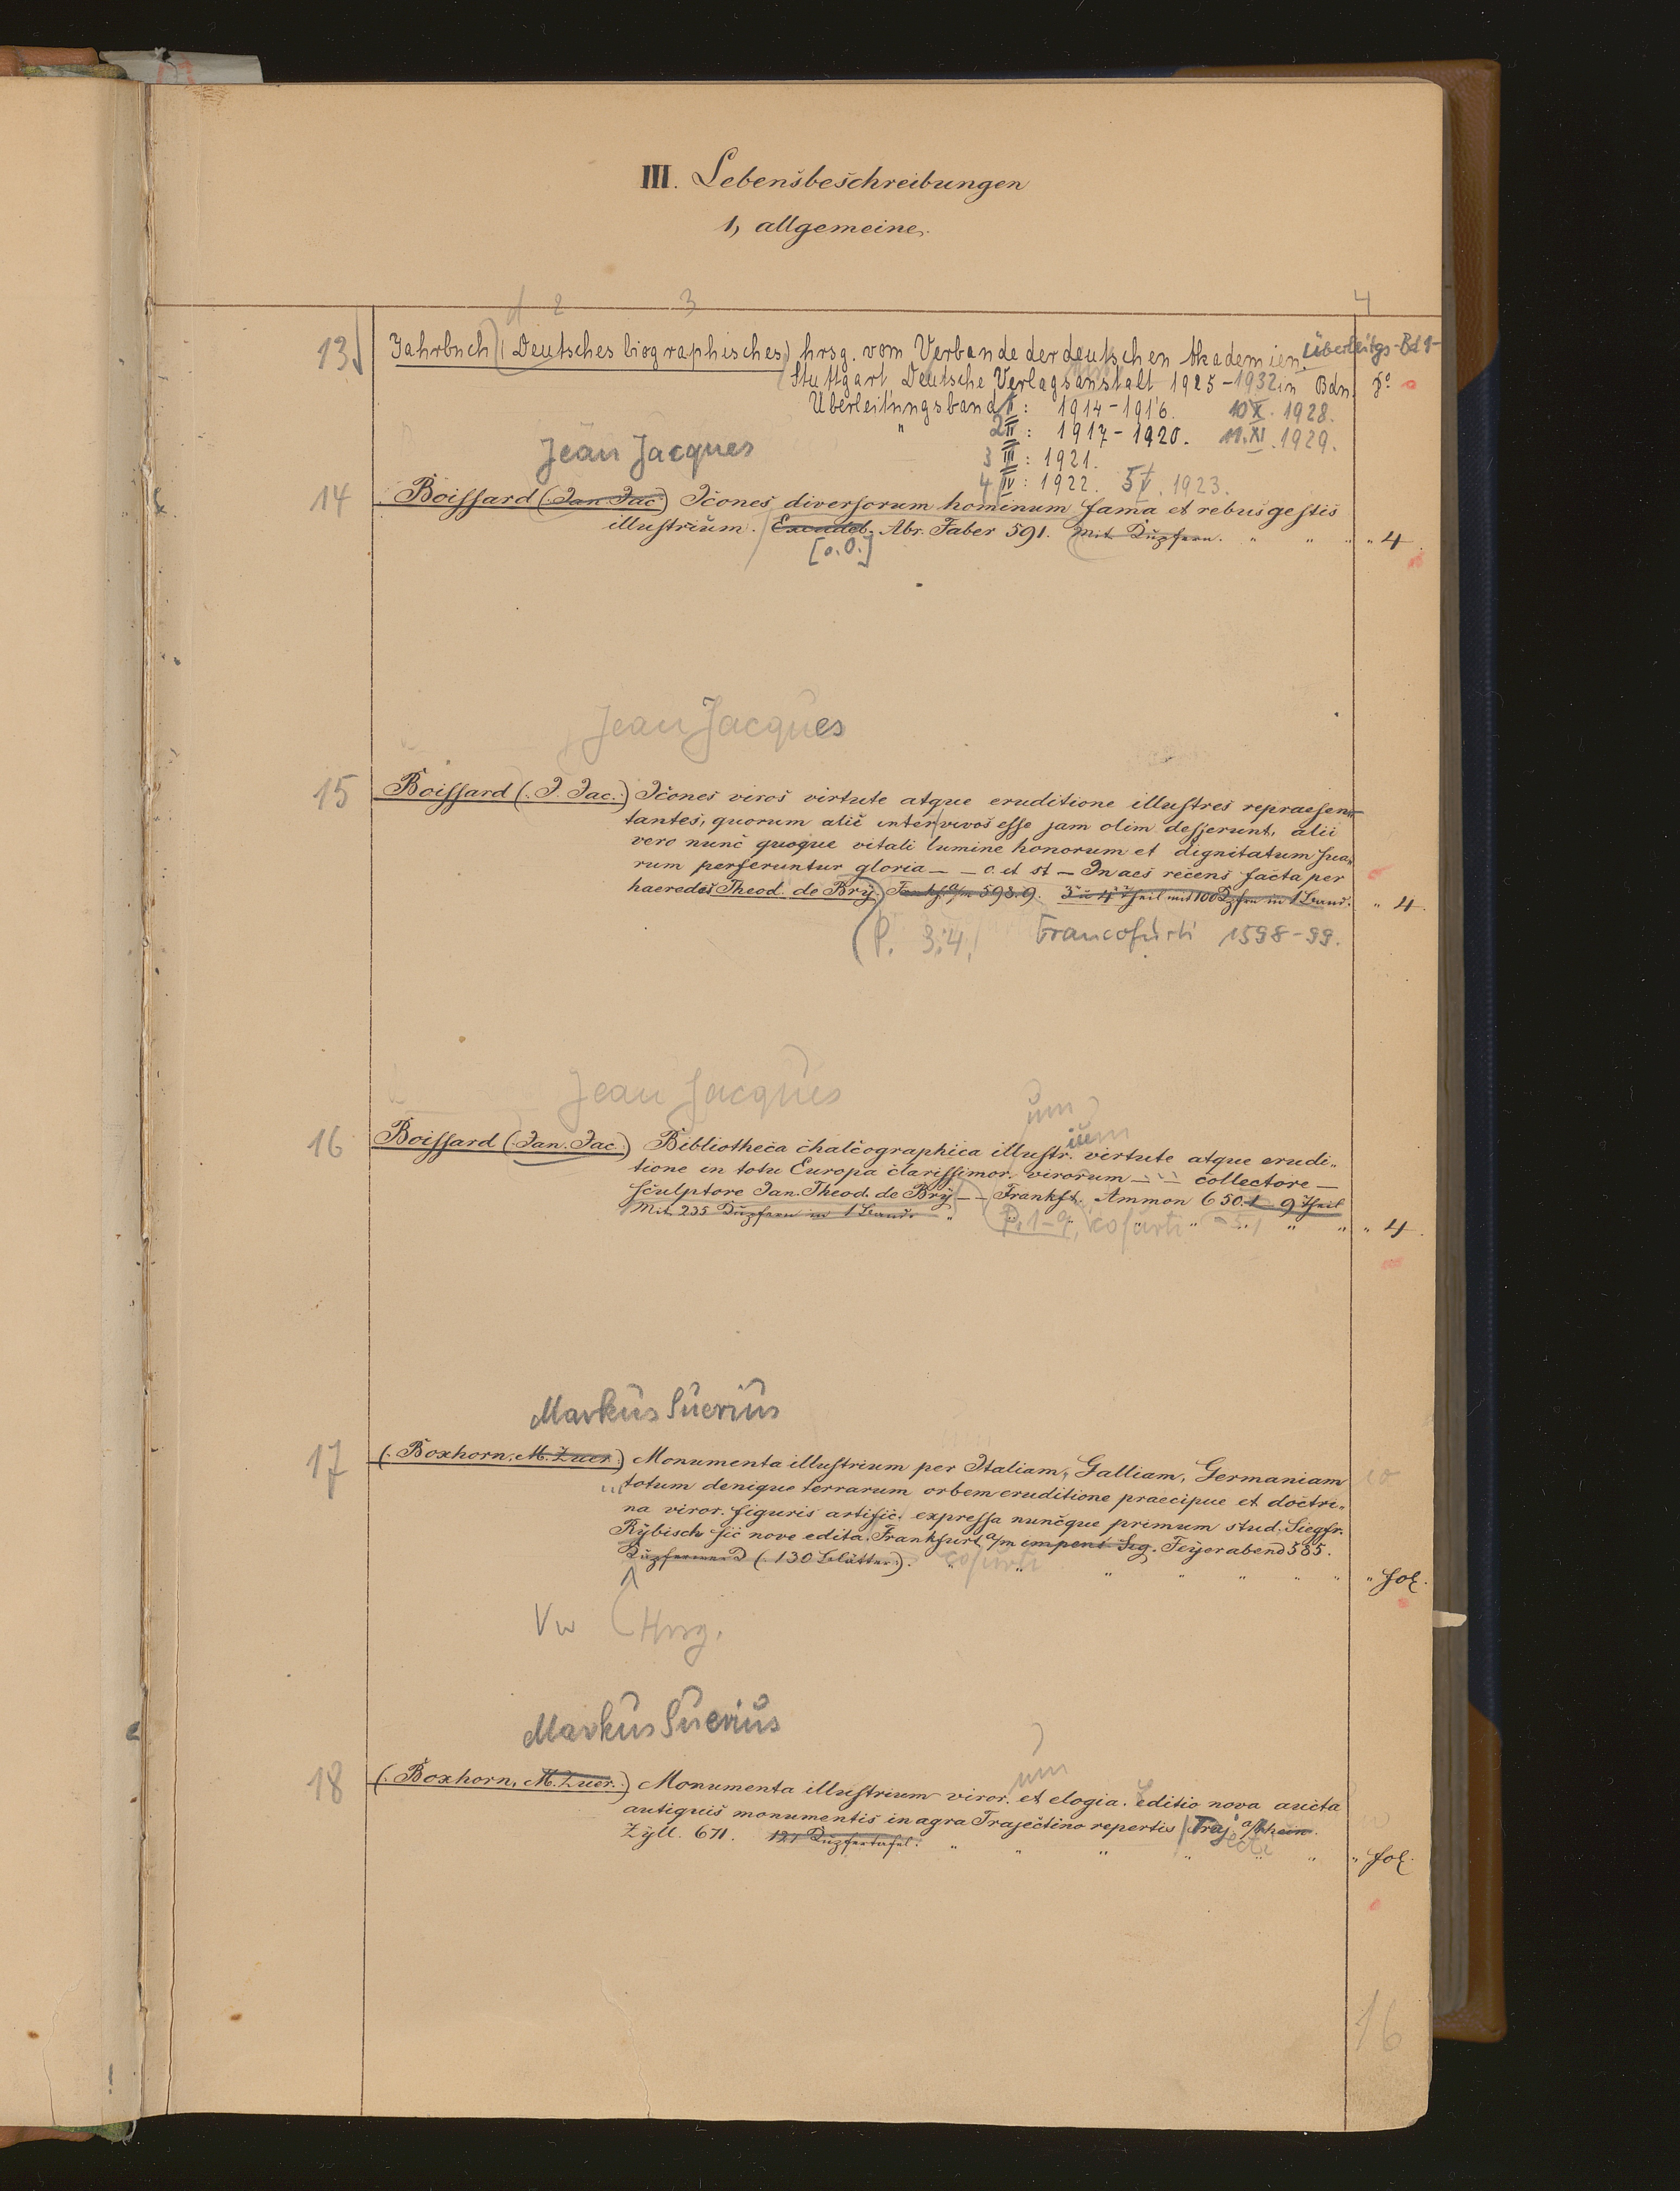 III. Lebensbeschreibungen
1, allgemeine.
d 2 3 4
13 Jahrbuch (Deutsches biographisches) hrsg. vom Verbande der deutschen Akademien. Überleitgs-Bd 1-
Stuttgart, Deutsche Verlagsanstalt 1925-1932 in Bdn. 8°
Überleitungsband I: 1914-1916. 10 X. 1928.
" 2 II: 1917-1920. 11. XI. 1929.
3 III: 1921.
4 IV: 1922. 5 V. 1923.
Jean Jacques
14 Boissard (Jan Jac.) Icones diversorum hominum fama et rebus gestis
illustrium. Excudeb. Abr. Faber 591. Mit Kupfern. " " " " 4
[o.O.]
Jean Jacques
15 Boissard (J. Jac.) Icones viros virtute atque eruditione illustres repraesen-
tantes, quorum alii inter vivos esse jam olim desierunt, alii
vero nunc quoque vitali lumine honorum et dignitatum sua-
rum perferuntur gloria — — c. et st — In aes recens facta per
haeredes Theod. de Brÿ. Frankf. a/m 598.9. 3r u 4r Theil mit 100 Kpfrn in 1 Band. " 4.
(P. 3.4, Francofurti 1598-99.
Jean Jacques
um
ium
16 Boissard (Jan. Jac.) Bibliotheca chalcographica illustr. virtute atque erudi-
tione in tota Europa clarissimor. virorum — — collectore —
sculptore Jan. Theod. de Brÿ — — Frankft. Ammon 650. 1-9 Theil
Mit 235 Kupfern in 1 Bande " P. 1-9, cofurti " " " " 4.
Markus Suerius
17 (Boxhorn, M. Zuer.) Monumenta illustrium per Italiam, Galliam, Germaniam
totum denique terrarum orbem eruditione praecipue et doctri-
na viror. figuris artific. expressa nuncque primum stud. Siegfr.
Rÿbisch sic nove edita. Frankfurt a/m impens. Sig. Feÿerabend 585.
Kupferwerk (130 Blätter). cofurti " " " " " " fol.
Vw (Hrsg.
Markus Suerius
um
18 (Boxhorn, M. Zuer.) Monumenta illustrium viror. et elogia. Editio nova aucta
antiquis monumentis in agra Trajectino repertis Traj. a/Rhein.
Zÿll. 671. 121 Kupfertafel. " " " " ecti " " fol.
16